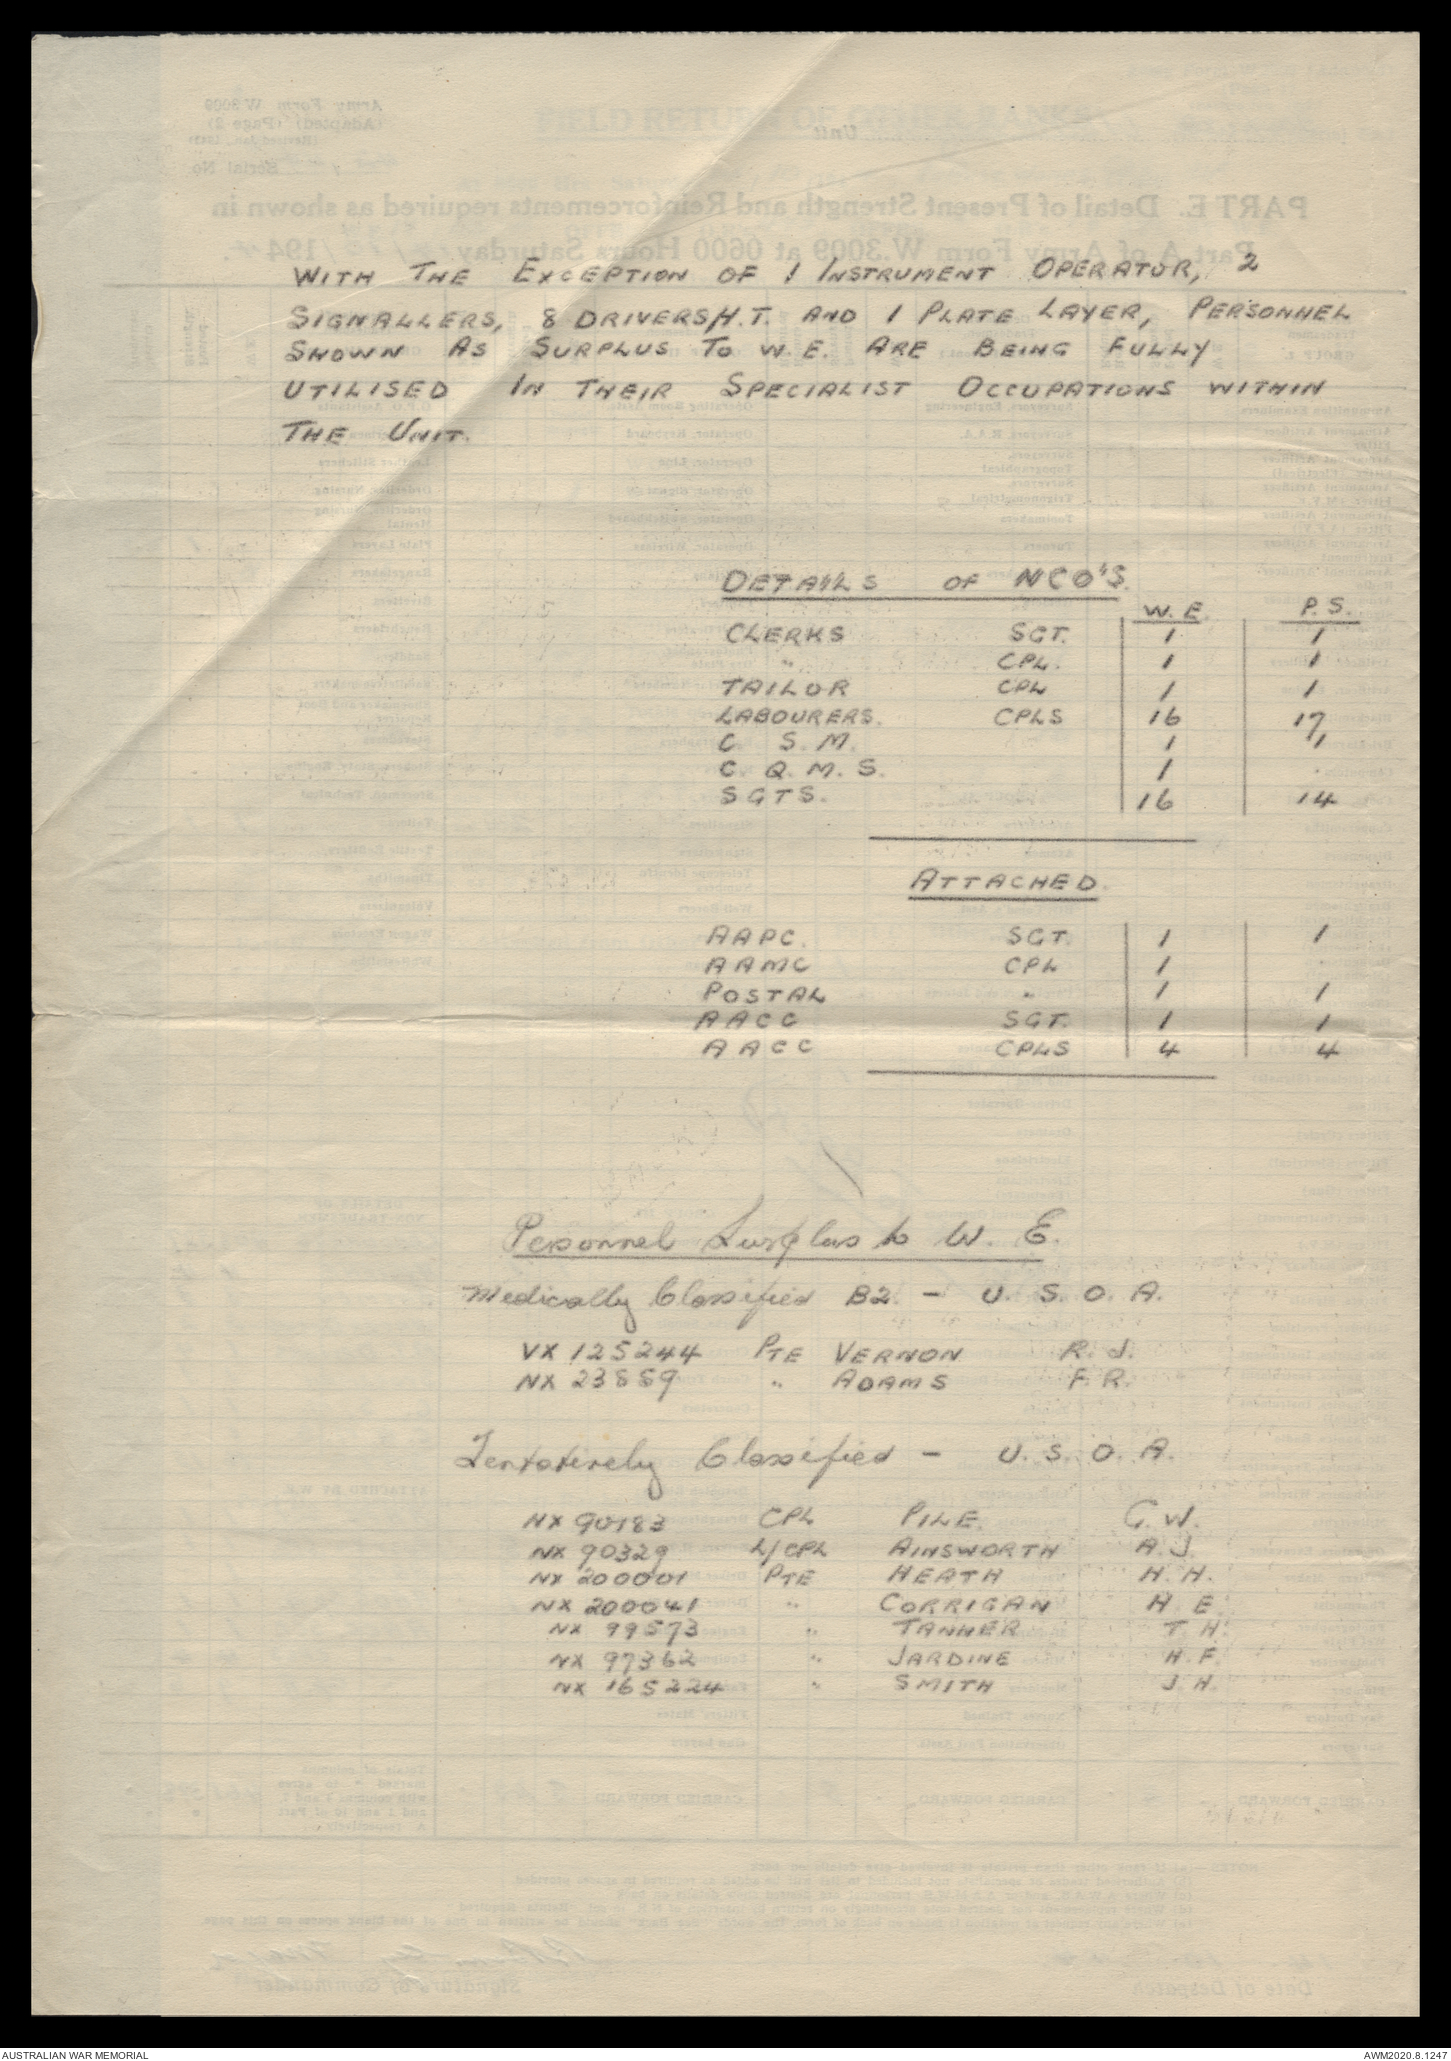 WITH THE EXCEPTION OF 1 INSTRUMENT OPERATOR, 2
SIGNALLERS, 8 DRIVERS/H.T. AND 1 PLATE LAYER, PERSONNEL
SHOWN AS SURPLUS TO W.E. ARE BEING FULLY
UTILISED IN THEIR SPECIALIST OCCUPATIONS WITHIN
THE UNIT.
DETAILS OF NCO'S.
W.E. P.S.
CLERKS SGT. 1 1
" CPL. 1 1
TAILOR CPL 1 1
LABOURERS. CPLS 16 17
C. S. M. 1 1
C. Q. M. S. 1 .
SGTS. 16 14
ATTACHED.
AAPC. SGT. 1 1
AAMC CPL 1 .
POSTAL " 1 1
AACC SGT. 1 1
AACC CPLS 4 4
Personnel Surplus to W. E.
Medically Classified B2. - U. S. O. A.
VX 125244 PTE VERNON R. J.
NX 23889 " ADAMS F. R.
Tentatively Classified - U. S. O. A.
NX 90183 CPL PILE. G. W.
NX 90329 L/CPL AINSWORTH A. J.
NX 200001 PTE HEATH H. H.
NX 200041 " CORRIGAN H. E.
NX 99573 " TANNER T. H.
NX 97362 " JARDINE H. F.
NX 165224 " SMITH J. H.
AUSTRALIAN WAR MEMORIAL AWM2020.8.1247